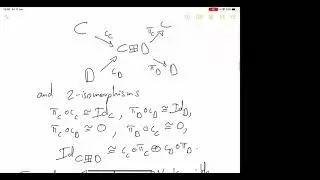 C C
ι_C π_C
C⊞D
D ι_D π_D D
and 2-isomorphisms
π_C∘ι_C ≅ Id_C, π_D∘ι_D ≅ Id_D,
π_C∘ι_D ≅ 0, π_D∘ι_C ≅ 0,
Id_{C⊞D} ≅ ι_C∘π_C ⊕ ι_D∘π_D.